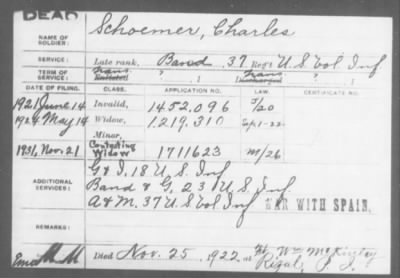 DEAD
NAME OF SOLDIER: Schoemer, Charles
SERVICE: Late rank, Band 37 Reg't U S Vol Inf
TERM OF SERVICE: Enlisted , 1 Discharged , 1
DATE OF FILING. CLASS. APPLICATION NO. LAW. CERTIFICATE NO.
1921 June 14 Invalid, 1452,096 J/20
1924 May 14 Widow, 1,219,310 Sep 1-22
Minor,
1931, Nov. 21 Contesting Widow 1711623 M/26
ADDITIONAL SERVICES: G & I, 18 U.S. Inf
Band & G, 23 U.S. Inf.
A & M. 37 U S Vol Inf WAR WITH SPAIN.
REMARKS:
Died Nov. 25, 1922, at Ft. Wm McKinley
Rizal, P. I.